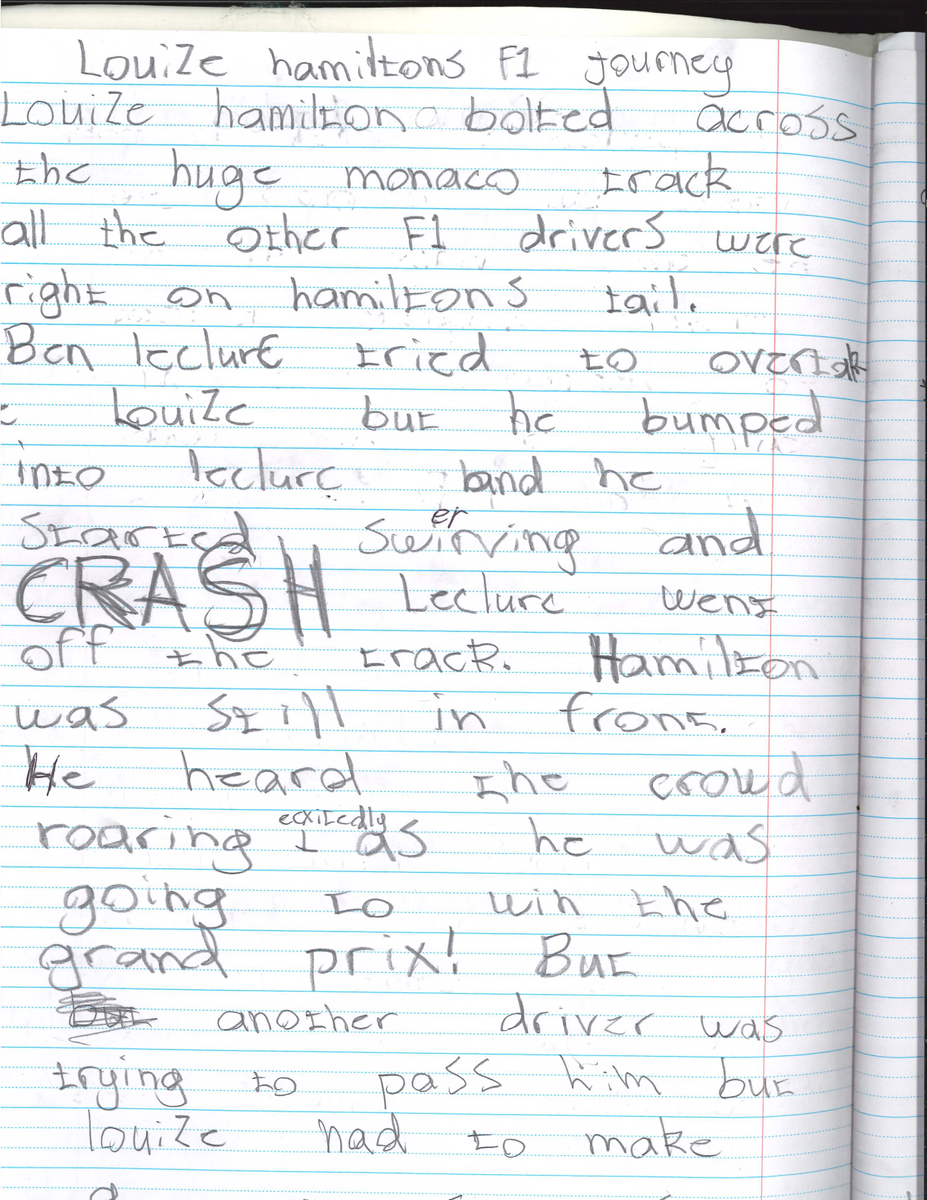 Louize hamiltons F1 journey
Louize hamilton bolted across
the huge monaco track
all the other F1 drivers were
right on hamiltons tail.
Ben leclure tried to overtak
e Louize but he bumped
into leclure and he
started swerving and
CRASH Leclure went
off the track. Hamilton
was still in front.
He heard the crowd
roaring ecxitedly as he was
going to win the
grand prix! But
another driver was
trying to pass him but
louize had to make